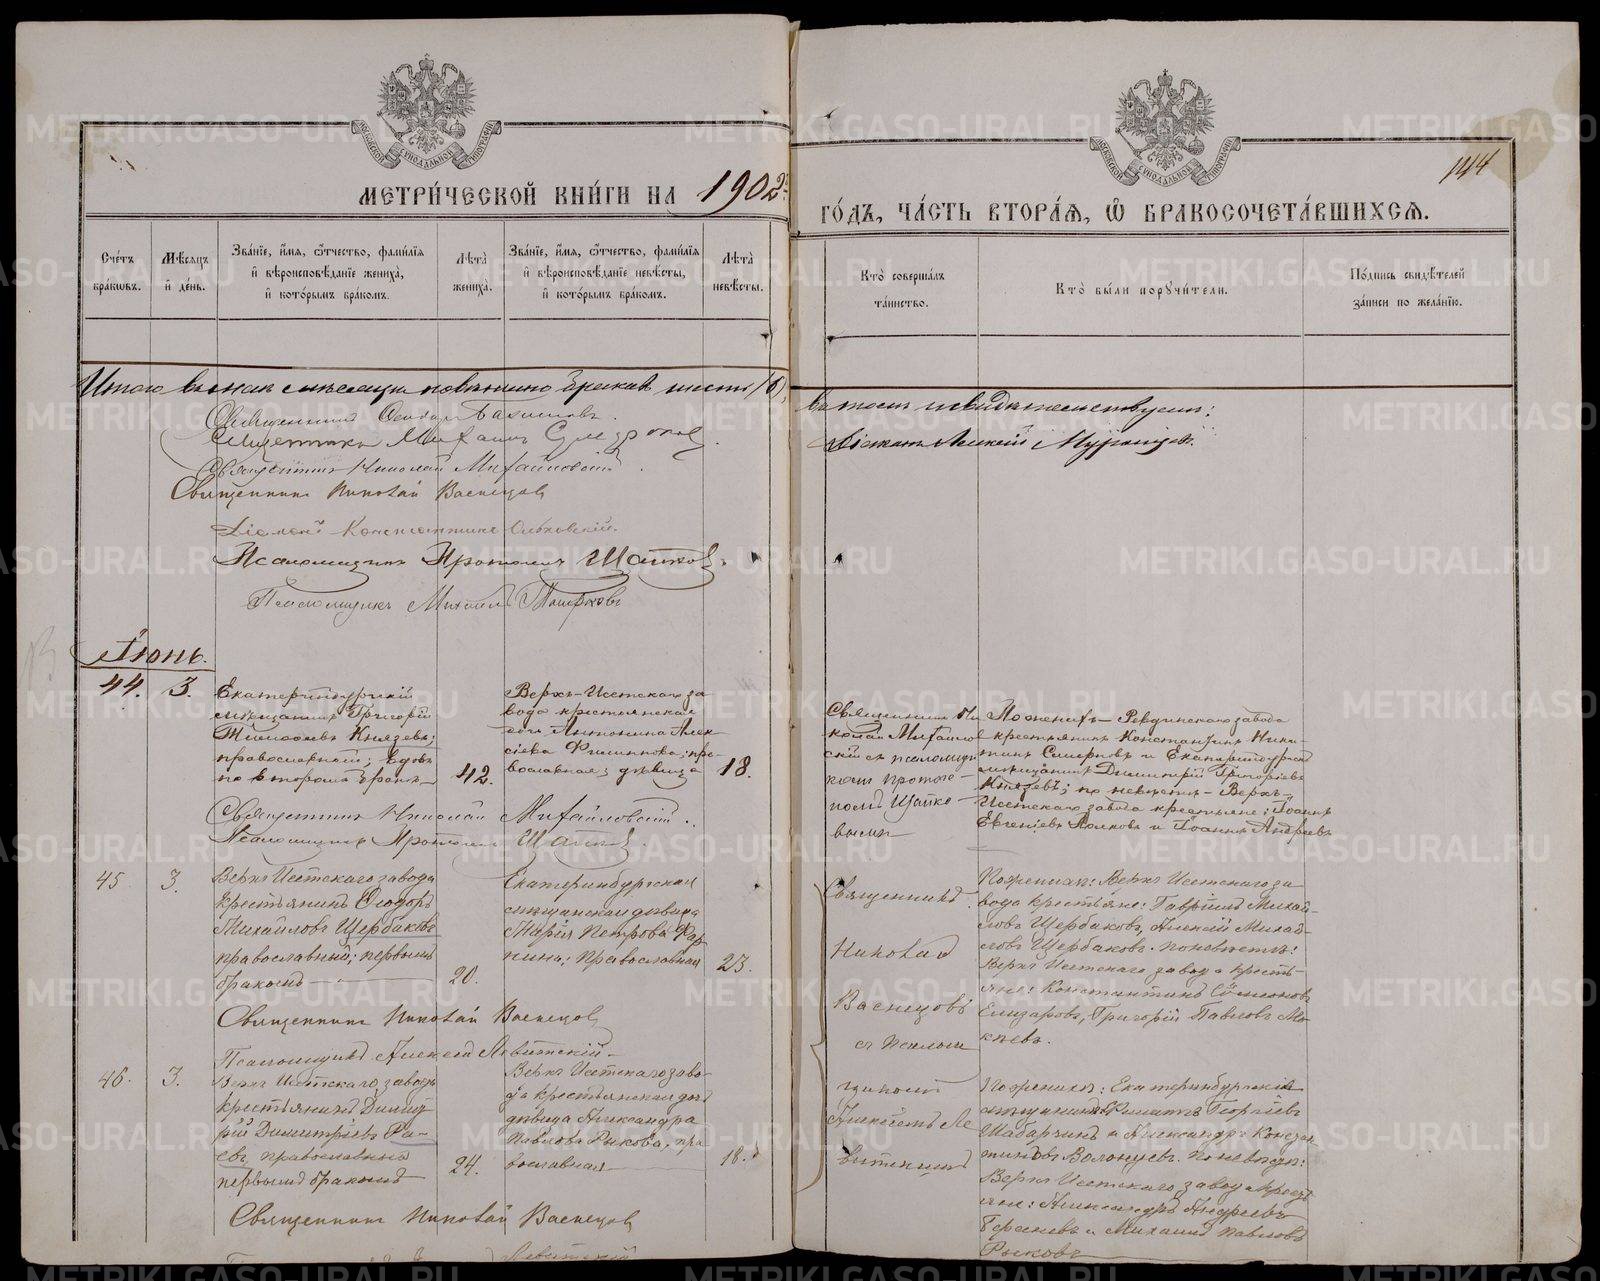 МЕТРИЧЕСКОЙ КНИГИ НА 1902 ГОДЪ, ЧАСТЬ ВТОРАЯ, Ѡ БРАКОСОЧЕТАВШИХСЯ.
144
Счетъ браковъ.
Мѣсяцъ и день.
Званіе, имя, ѿчество, фамилія и вѣроисповѣданіе жениха, и которымъ бракомъ.
Лѣта жениха.
Званіе, имя, ѿчество, фамилія и вѣроисповѣданіе невѣсты, и которымъ бракомъ.
Лѣта невѣсты.
Кто совершалъ таинство.
Кто были поручители.
Подпись свидѣтелей записи по желанію.
Итого въ маѣ мѣсяцѣ повѣнчано браковъ шесть (6),
въ томъ и свидѣтельствуемъ:
Священникъ
Священникъ Михаилъ
Діаконъ Алексій
Священникъ Николай Михайловскій.
Священникъ Николай Васнецовъ
Діаконъ Константинъ
Псаломщикъ Протогенъ Шайковъ
Псаломщикъ Михаилъ
Іюнь.
44. 3.
Екатеринбургскій
мѣщанинъ Григорій
Князевъ;
православный; вдовъ
по второму браку
42.
Верхъ-Исетскаго за
вода крестьянская
дочь Антонина Алек
сіева Филиппова; пра
вославная; дѣвица
18.
Священникъ Ни
колай Михайлов
скій съ псаломщи
комъ Протоге
номъ Шайко
вымъ
По женихѣ – Ревдинскаго завода
крестьянинъ Константинъ Ники
тинъ Смирновъ и Екатеринбургскій
мѣщанинъ Димитрій Григорьевъ
Князевъ; по невѣстѣ – Верхъ-
Исетскаго завода крестьяне: Іоаннъ
Евгеніевъ и Іоаннъ Андреевъ
Священникъ Николай Михайловскій.
Псаломщикъ Протогенъ Шайковъ.
45. 3.
Верхъ Исетскаго завода
крестьянинъ Ѳеодоръ
Михайловъ Щербаковъ
православный; первымъ
бракомъ
20.
Екатеринбургская
мѣщанская дѣвица
Марія Петрова
православная
23.
Священникъ
Николай
Васнецовъ
съ псалом
щикомъ
Алексѣемъ Ле
витскимъ
По женихѣ: Верхъ Исетскаго за
вода крестьяне: Гавріилъ Михай
ловъ Щербаковъ, Алексій Михай
ловъ Щербаковъ. По невѣстѣ:
Верхъ Исетскаго завода кресть
яне: Константинъ Симеоновъ
Елизаровъ, Григорій Павловъ Мо
кѣевъ.
Священникъ Николай Васнецовъ
Псаломщикъ Алексѣй Левитскій
46. 3.
Верхъ Исетскаго завода
крестьянинъ Димит
рій Димитріевъ Ра
евъ, православный
первымъ бракомъ
24.
Верхъ Исетскаго заво
да крестьянская дочь
дѣвица Александра
Павлова Рыкова, пра
вославная
18.
По женихѣ: Екатеринбургскій
мѣщанинъ Филиппъ Георгіевъ
Шабарчинъ и Александръ Констан
тиновъ По невѣстѣ:
Верхъ Исетскаго завода кресть
яне: Александръ Андреевъ
и Михаилъ Павловъ
Рыковъ
Священникъ Николай Васнецовъ
Левитскій
METRIKI.GASO-URAL.RU